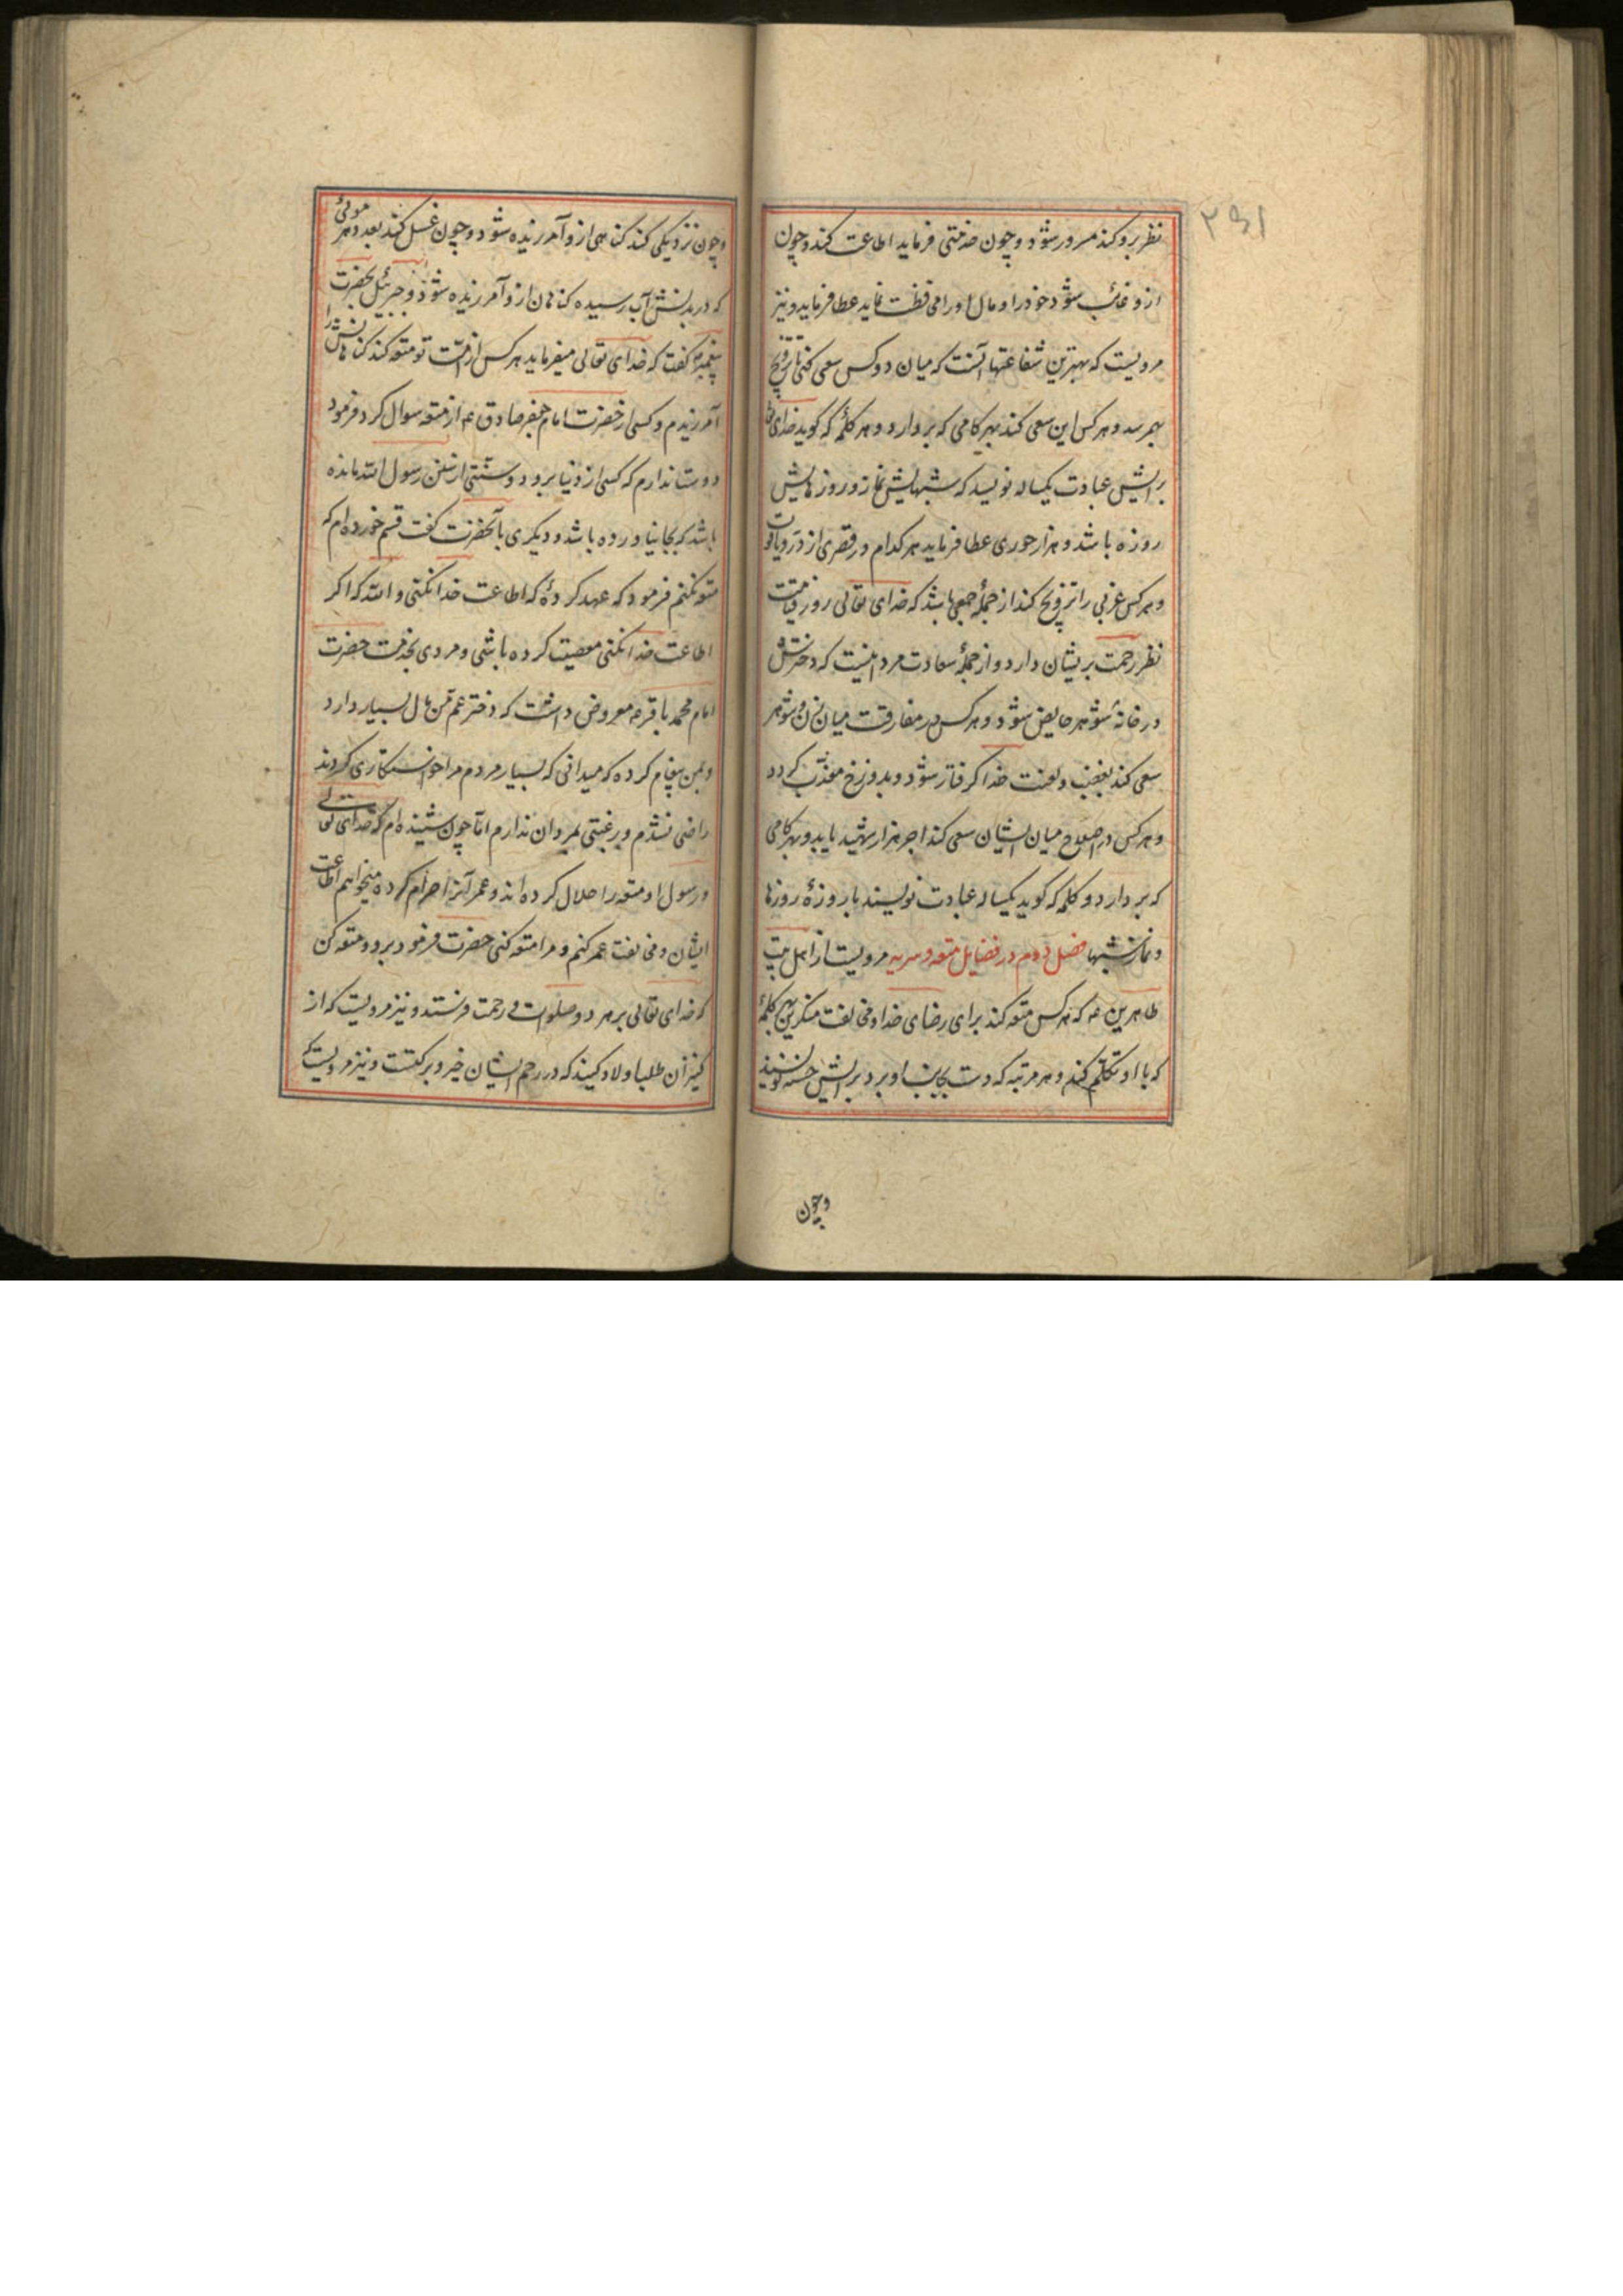 نظر برو کند مسرور شود و چون خدمتی فرماید اطاعت کند و چون
ازو غائب شود خود را و مال او را محافظت نماید عطا فرماید و نیز
مرویست که بهترین شفاعتها آنست که میان دو کس سعی کنی تا تزویج
بهم رسد و هر کس این سعی کند بهر کامی که بردارد و هر کلمۀ که کوید خدای
برایش عبادت یکساله نویسد که شبهایش نماز و روزهایش
روزه باشد و هزار حوری عطا فرماید هر کدام در قصری از در و یاقوت
و هر کس عزبی را تزویج کند از جملۀ جمعی باشد که خدای تعالی روز قیامت
نظر رحمت بریشان دارد و از جملۀ سعادت مرد اینست که دخترش
در خانۀ شوهر حایض شود و هر کس در مفارقت میان زن و شوهر
سعی کند بغضب و لعنت خدا کرفتار شود و بدوزخ معذب کردد
و هر کس در اصلاح میان ایشان سعی کند اجر هزار شهید یابد و بهر کامی
که بردارد و کلمه که کوید یکساله عبادت نویسند با روزۀ روزها
و نماز شبها فصل دوم در فضایل متعه و سریه مرویست از اهل بیت
طاهرین عم که هر کس متعه کند برای رضای خدا و مخالفت منکرین بهر کلمۀ
که با او تکلم کند و هر مرتبه که دست بجانب او برد برایش حسنه نویسند
و چون
و چون نزدیکی کند کناهی ازو آمرزیده شود و چون غسل کند بعدد هر موئی
که در بدنش آب رسیده کناهان ازو آمرزیده شود و جبرئیل بحضرت
پیغمبر ص کفت که خدای تعالی میفرماید هر کس از امت تو متعه کند کناهانش را
آمرزیدم و کسی از حضرت امام جعفر صادق ع از متعه سوال کرد فرمود
دوست ندارم که کسی از دنیا برود و سنتی از سنن رسول الله مانده
باشد که بجا نیاورده باشد و دیکری بآنحضرت کفت قسم خورده ام که
متعه نکنم فرمود که عهد کردۀ که اطاعت خدا نکنی و الله که اکر
اطاعت خدا نکنی معصیت کرده باشی و مردی بخدمت حضرت
امام محمد باقر ع معروض داشت که دختر عم من مال بسیار دارد
و بمن پیغام کرده که میدانی که بسیار مردم مرا خواستکاری کردند
راضی نشدم و رغبتی بمردان ندارم اما چون شنیده ام که خدای تعالی
و رسول او متعه را حلال کرده اند و عمر آنرا حرام کرده میخواهم اطاعت
ایشان و مخالفت عمر کنم و مرا متعه کنی حضرت فرمود برو و متعه کن
که خدای تعالی بر هر دو صلوات و رحمت فرستد و نیز مرویست که از
کنیزان طلب اولاد کنید که در رحم ایشان خیر و برکتست و نیز مرویست که